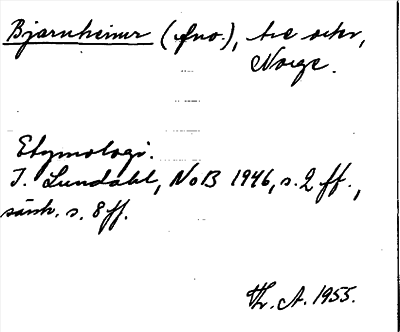 Bjarnheimr (fno.), tre orter,
Norge.
Etymologi.
I. Lundahl, NoB 1946, s. 2 ff.,
särsk. s. 8 ff.
Th. A. 1955.